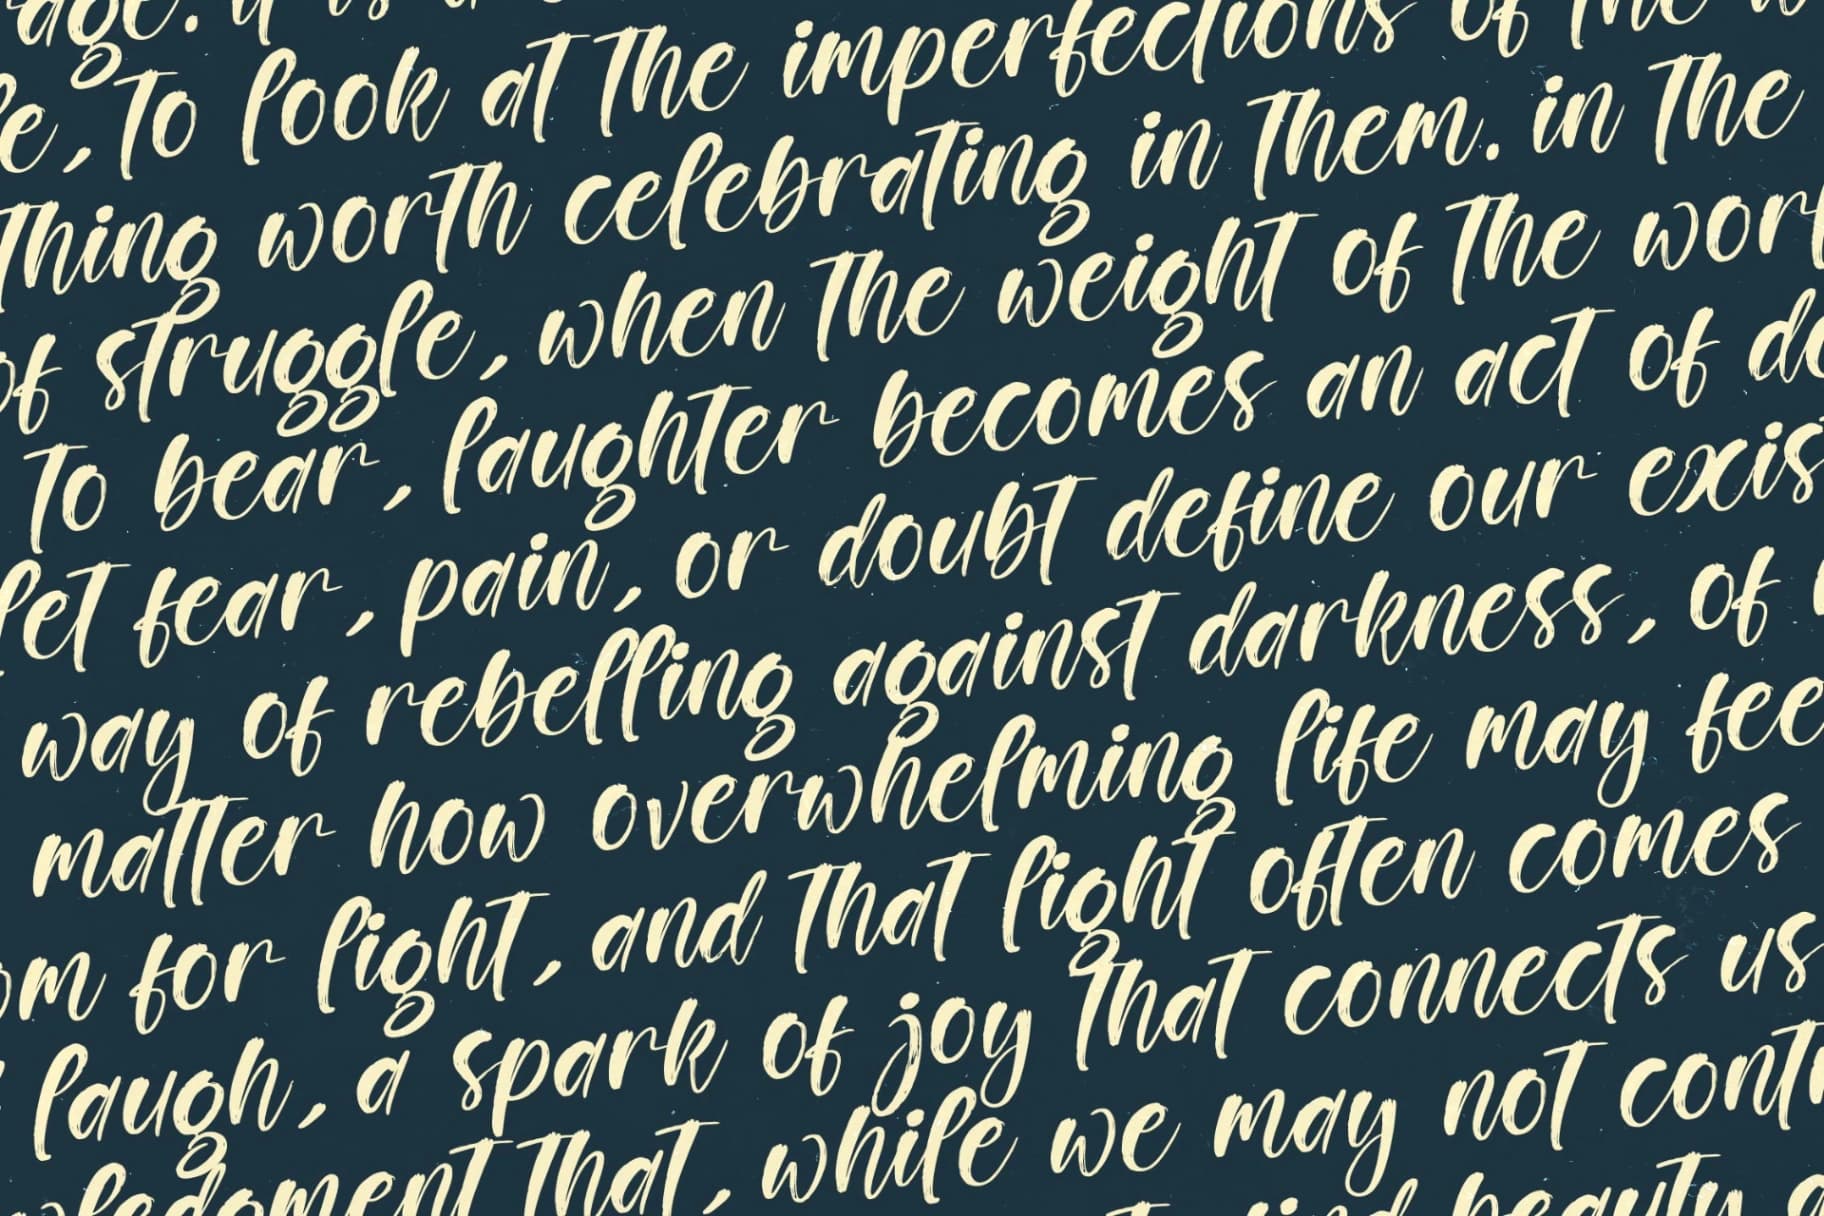 age. it is a
to look at the imperfections of the
thing worth celebrating in them. in the
of struggle, when the weight of the
to bear, laughter becomes an act of
let fear, pain, or doubt define our
way of rebelling against darkness, of
matter how overwhelming life may
for light, and that light often comes
laugh, a spark of joy that connects us
that, while we may not
beauty